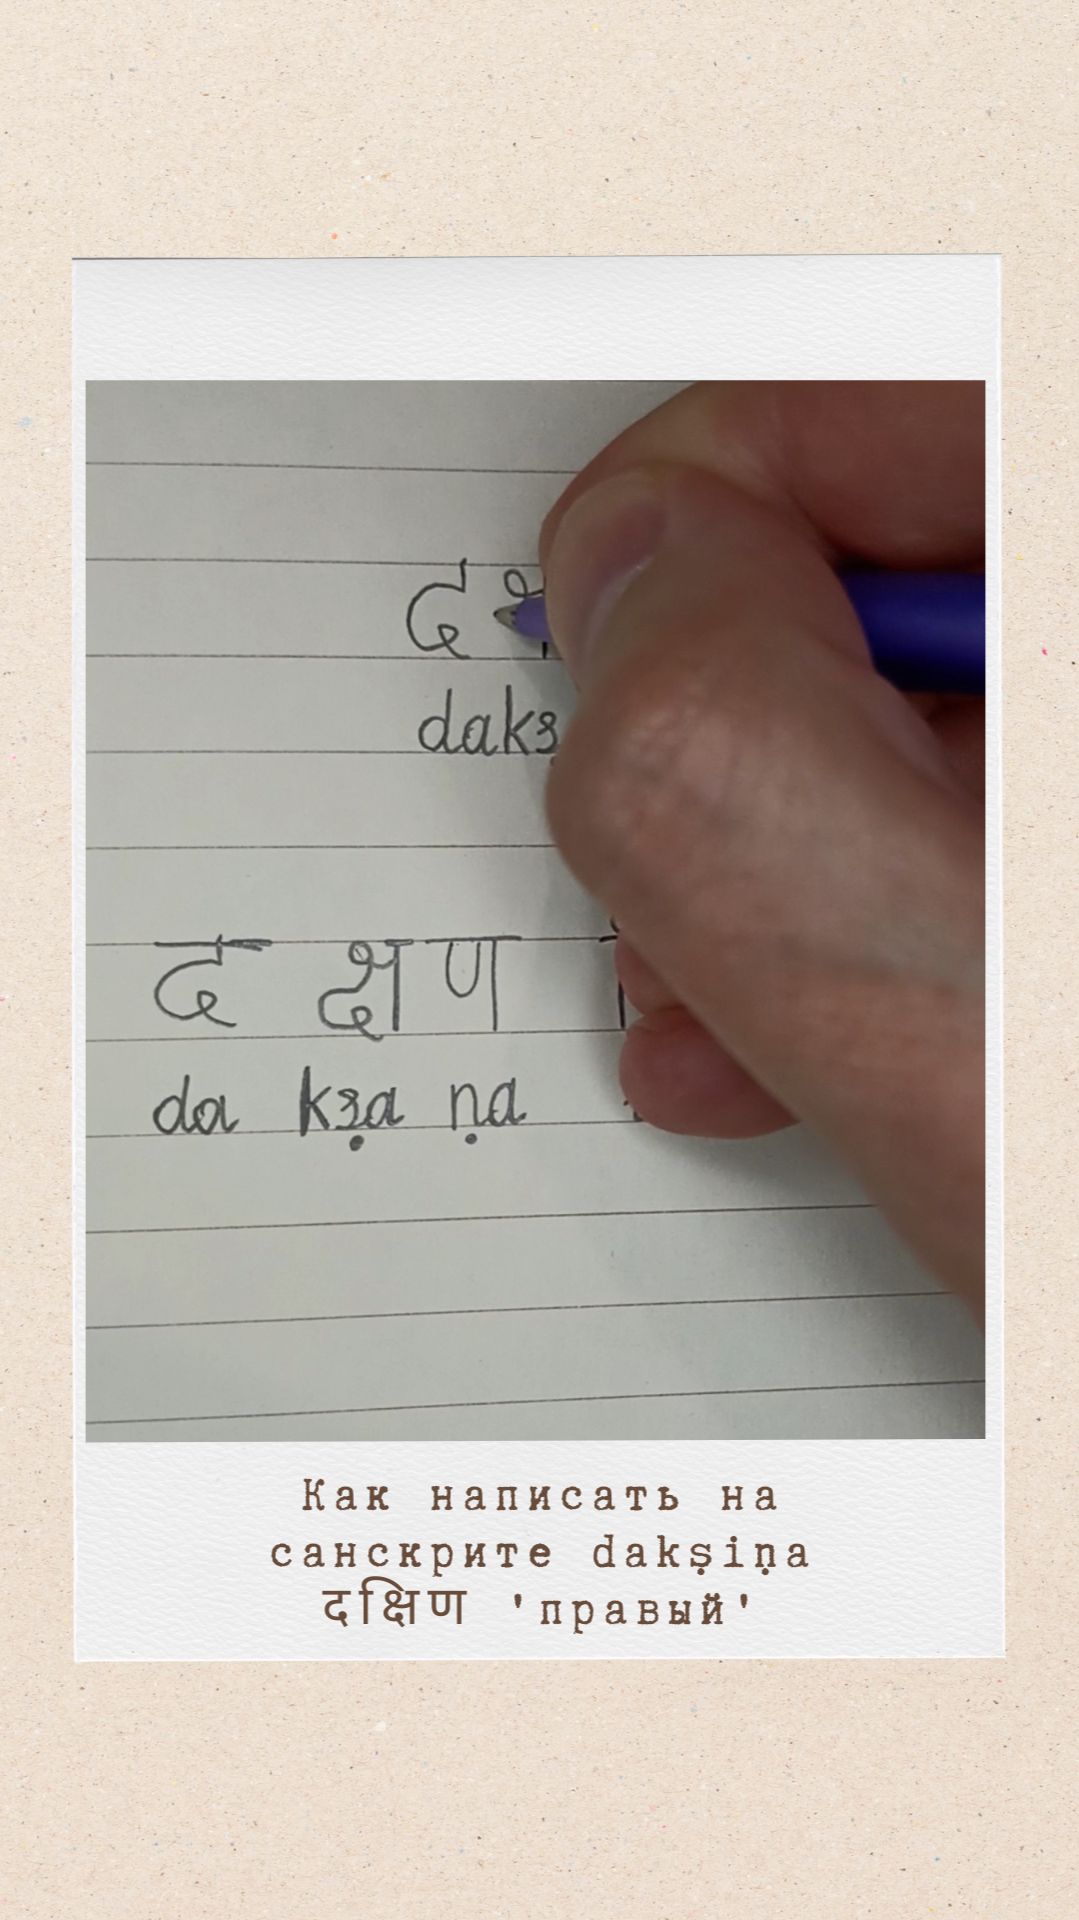 द
daks
द क्ष ण
da kṣa ṇa
Как написать на
санскрите dakṣiṇa
दक्षिण 'правый'